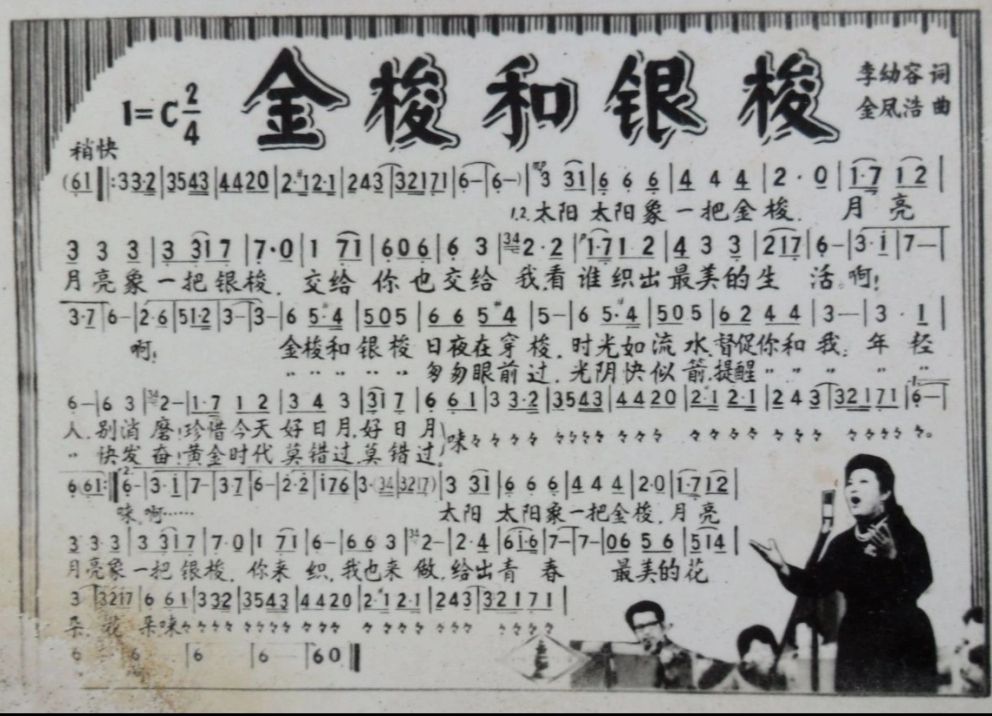 金梭和银梭
李幼容 词
金凤浩 曲
1=C 2/4
稍快
(61‖:33 3·2|35 43|44 20|2·1 2·1|2 4 3|32 171|6–|6–)|3 31|6 6 6|4 4 4|2·0|1·7 1 2|
1.2.太阳 太阳象一把金梭, 月亮
3 3 3|3 31 7|7·0|1 71|6 0 6|6 3|2·2|1·7 1 2|4 3 3|2 17|6–|3·i|7–|
月亮象一把银梭, 交给你也交给我,看谁织出最美的生活。啊!
3·7|6–|2·6|51·2|3–|3–|6 5·4|5 0 5|6 6 5 4|5–|6 5·4|5 0 5|6 2 4 4|3–|3·1|
啊! 金梭和银梭日夜在穿梭,时光如流水,督促你和我,年轻
〃〃〃〃〃匆匆眼前过,光阴快似箭,提醒〃〃〃〃〃
6–|6 3|2–|1·7 1 2|3 4 3|31 7|6 61|33 3·2|35 43|44 20|2·1 2·1|2 4 3|32 171|6–|
人,别消磨!珍惜今天好日月,好日月
〃快发奋!黄金时代莫错过,莫错过,
唻々々々々 々々々 々々々 々々々 々々々 々々々々。
6 61:‖6–|3·i|7–|3·7|6–|2·2|176|3·34|3217)|3 31|6 6 6|4 4 4|2·0|1·7 12|
唻,啊…… 太阳 太阳象一把金梭,月亮
3 3·3|3 31 7|7·0|1 71|6–|6 6 3|2–|2·4|61·6|7–|7–|06 5 6|5 14|
月亮象一把银梭,你来织,我也来做,给出青春 最美的花
3|3217|6 61|332|35 43|44 20|2·1 2·1|243|32 171|
朵,花朵唻々々々々 々々々 々々々 々々々 々々々
6|6|6|6–|60‖